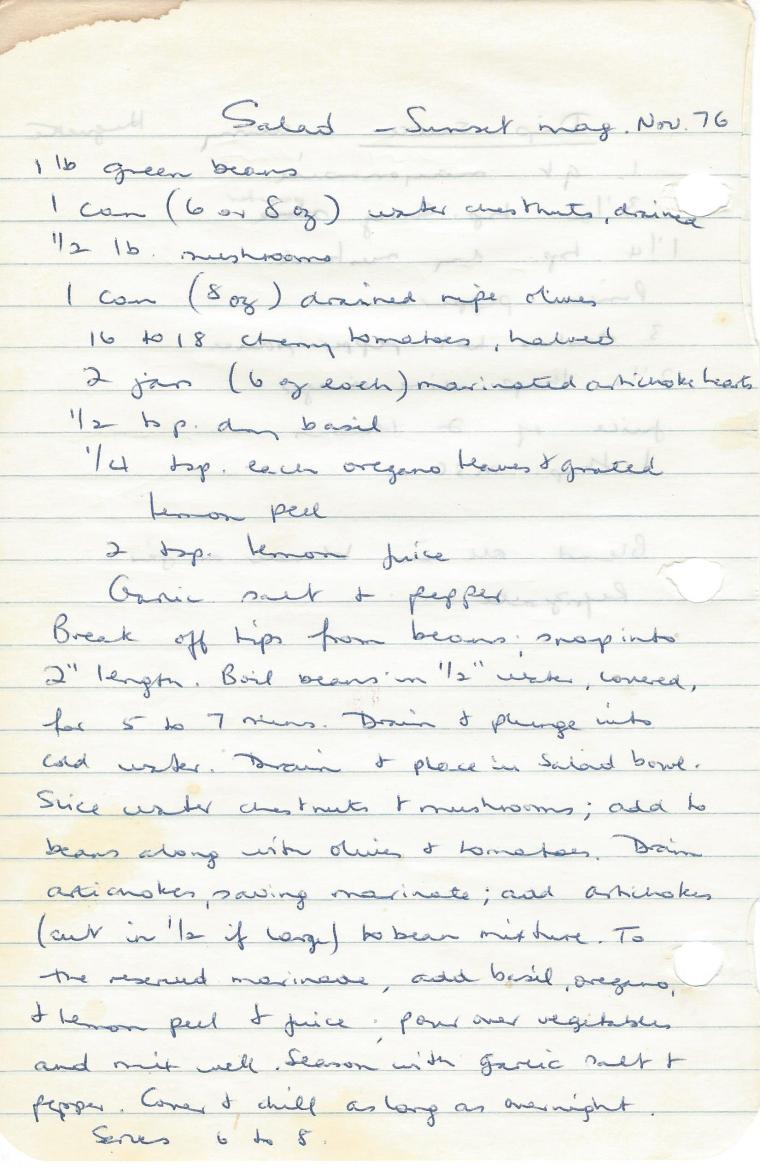 Salad - Sunset mag. Nov. 76
1 lb green beans
1 can (6 or 8 oz) water chestnuts, drained
1/2 lb. mushrooms
1 can (8 oz) drained ripe olives
16 to 18 cherry tomatoes, halved
2 jars (6 oz each) marinated artichoke hearts
1/2 tsp. dry basil
1/4 tsp. each oregano leaves & grated
lemon peel
2 tsp. lemon juice
Garlic salt & pepper
Break off tips from beans; snap into
2" length. Boil beans in 1/2" water, covered,
for 5 to 7 mins. Drain & plunge into
cold water. Drain & place in salad bowl.
Slice water chestnuts & mushrooms; add to
beans along with olives & tomatoes. Drain
artichokes, saving marinate; add artichokes
(cut in 1/2 if large) to bean mixture. To
the reserved marinade, add basil, oregano,
& lemon peel & juice; pour over vegetables
and mix well. Season with garlic salt &
pepper. Cover & chill as long as overnight.
Serves 6 to 8.